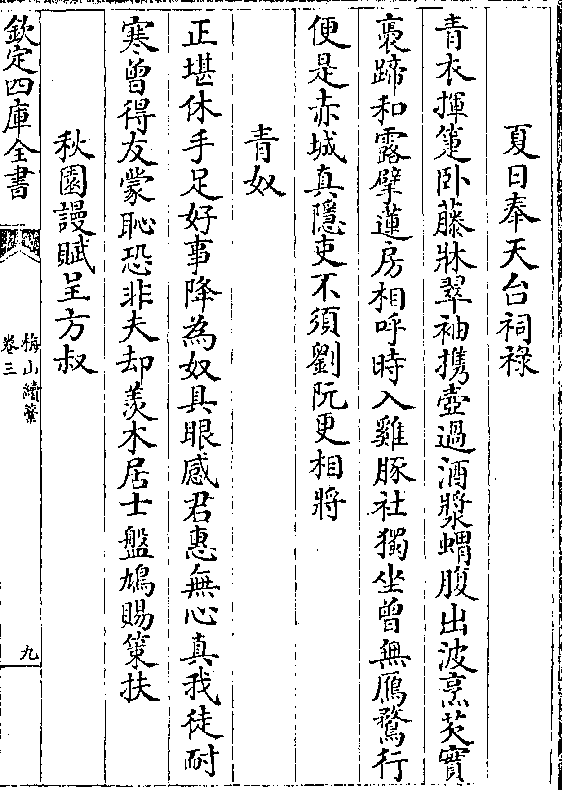 夏日奉天台祠祿
青衣揮箑卧藤牀翠袖擕壺過酒漿蝟腹出波烹芡實
褭蹄和露擘蓮房相呼時入雞豚社獨坐曾無鴈鶩行
便是赤城真隱吏不須劉阮更相將
青奴
正堪休手足好事降為奴具眼感君惠無心真我徒耐
寒曾得友蒙恥恐非夫却羡木居士盤鳩賜策扶
秋園謾賦呈方叔
欽定四庫全書
梅山續藁
卷三
九